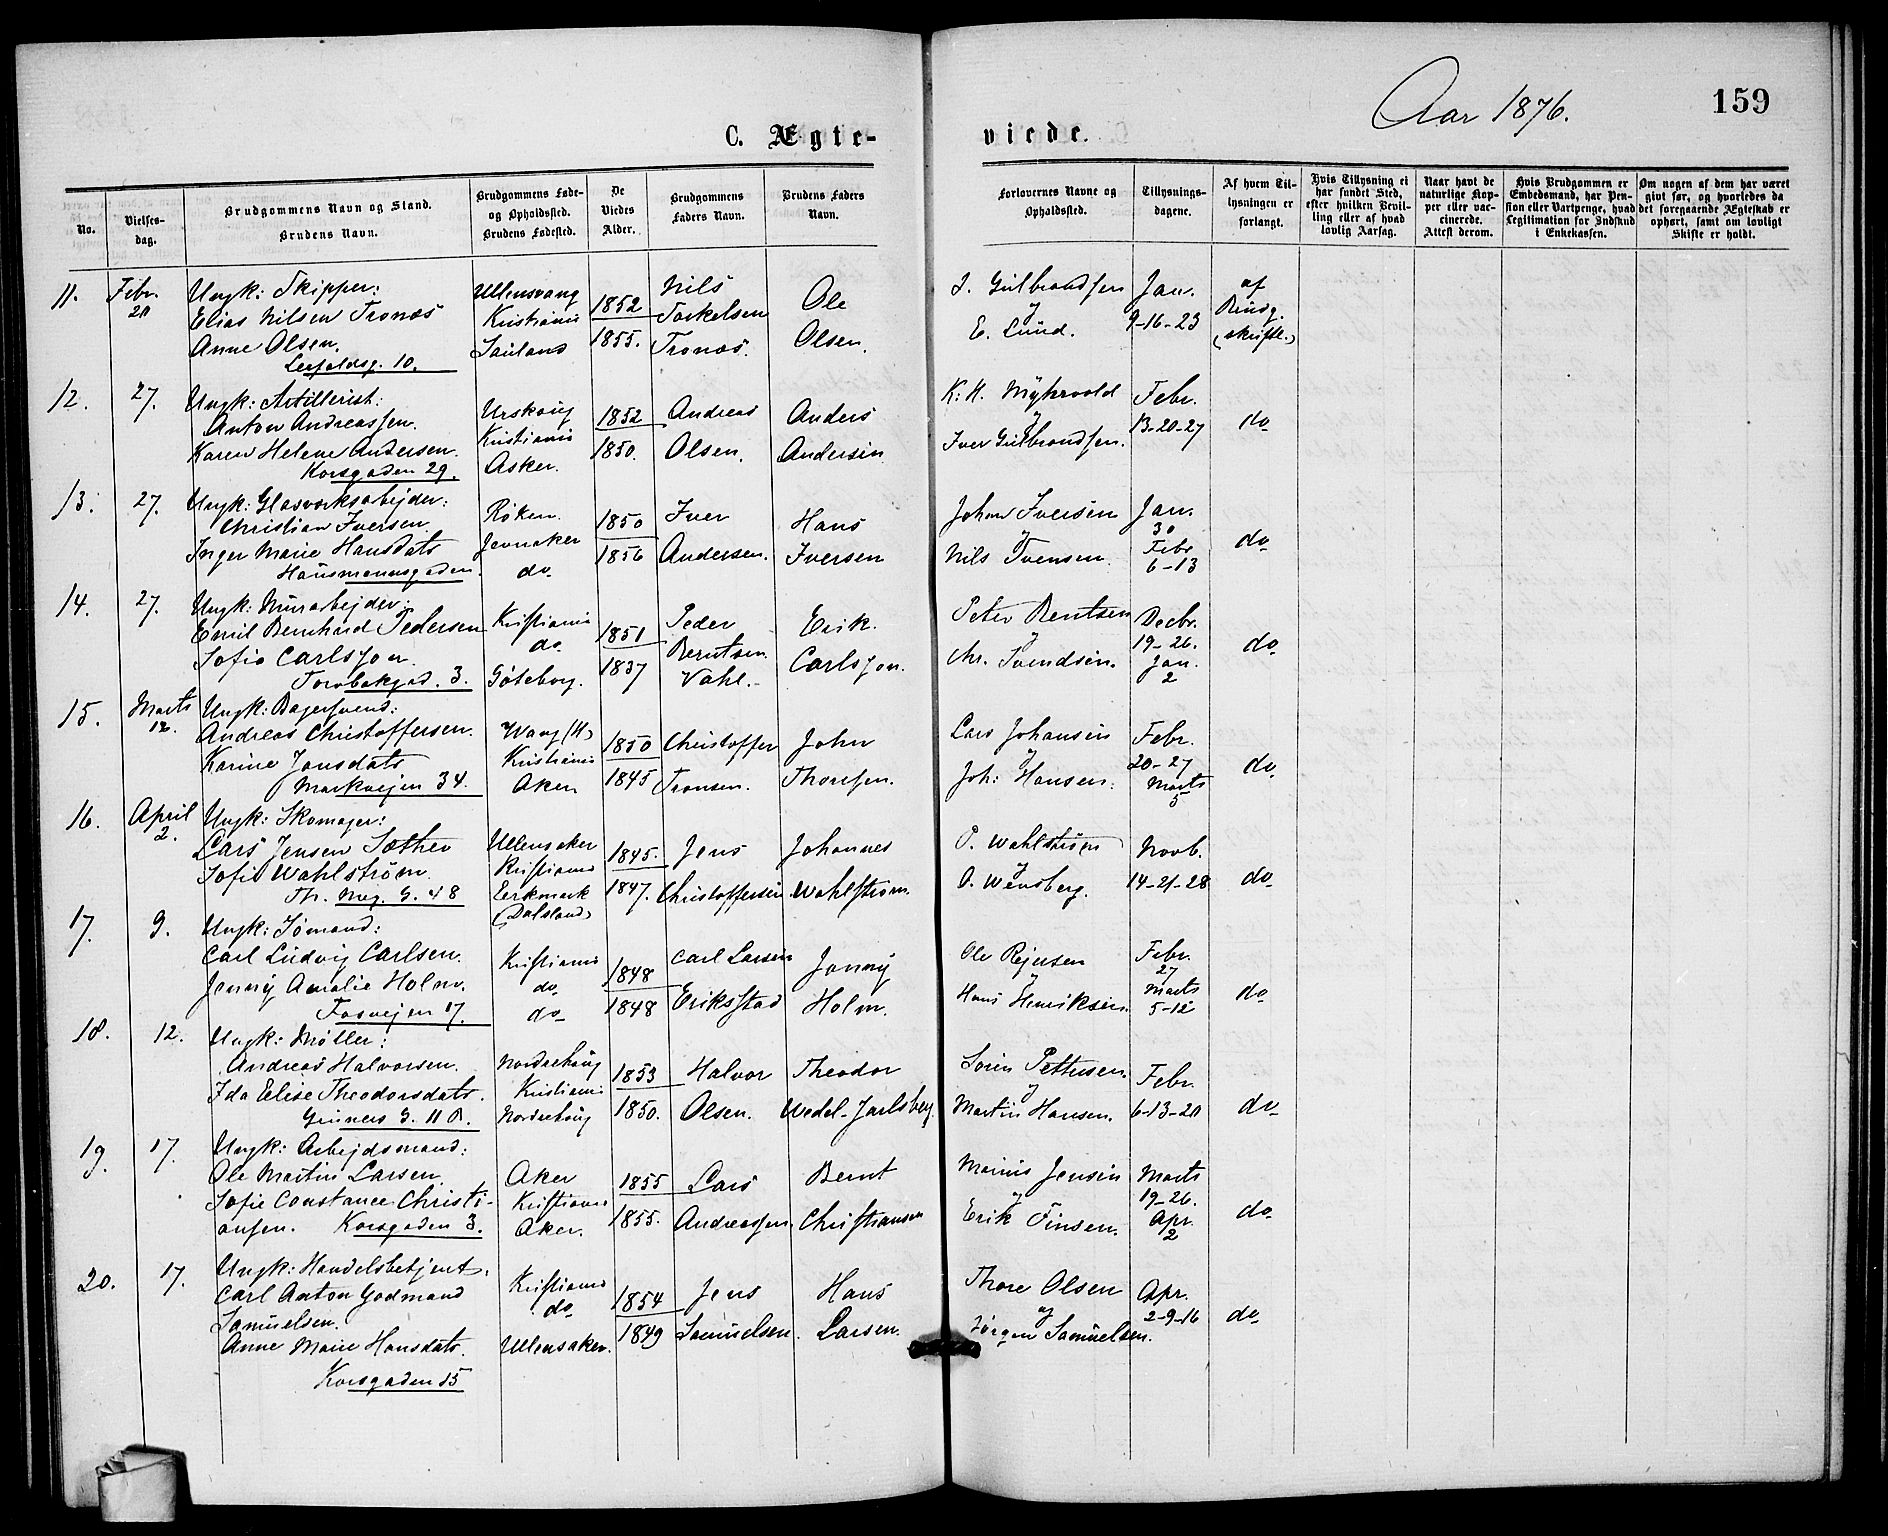 Aar 1876.
159
C. Ægte-
viede.
No.
Vielses-
dag.
Brudgommens Navn og Stand.
Brudens Navn.
Brudgommens Føde-
og Opholdssted.
Brudens Fødested.
De
Viedes
Alder.
Brudgommens
Faders Navn.
Brudens Faders
Navn.
Forlovernes Navne og
Opholdssted.
Tillysnings-
dagene.
Af hvem Til-
lysningen er
forlangt.
Hvis Tillysning ei
har fundet Sted,
efter hvilken Bevil-
ling eller af hvad
lovlig Aarsag.
Naar havt de
naturlige Kop-
per eller vac-
cinerede.
Attest derom.
Hvis Brudgommen er
Embedsmand, har Pen-
sion eller Vartpenge, hvad
Legitimation for Indskud
i Enkekassen.
Om nogen af dem har været
givt før, og hvorledes da
det foregaaende Ægteskab er
ophørt, samt om lovligt
Skifte er holdt.
11.
Febr.
20
Ungk: Skipper:
Elias Nilsen Tronæs
Anne Olsen.
10.
Ullensvang
Kristiania
Sauland
1852
1855.
Nils
Torkelsen
Tronæs.
Ole
Olsen.
J. Gulbrandsen
E. Lund.
Jan.
9-16-23
af
Brudg.
(skriftl.)
12.
27.
Ungk: Artillerist:
Anton Andreassen.
Karen Helene Andersen.
Korsgaden 29.
Urskoug
Kristiania
Asker.
1852
1850.
Andreas
Olsen.
Anders
Andersen
K. H. Myhrvold
&
Iver Gulbrandsen.
Febr.
13-20-27
do
13.
27.
Ungk: Glasværksarbejder:
Christian Iversen
Inger Marie Hansdatr
Hausmannsgaden.
Røken.
Jevnaker
do.
1850
1856
Iver
Andersen.
Hans
Iversen
Johan Iversen
&
Nils Svensen.
Jan.
30
Febr
6-13
do
14.
27.
Ungk: Murarbejder:
Emil Bernhard Pedersen
Sofia Carlsson.
3.
Kristiania
do.
Göteborg.
1851
1837
Peder
Berntsen
Vahl.-
Erik.
Carlsson.
Peter Berntsen
&
Chr. Svendsen.
Decbr.
19-26.
Jan.
2
do
15.
Marts
12.
Ungk: Bagersvend:
Andreas Christoffersen.
Karine Jonsdatr
Markvejen 34.
Wang (H)
Kristiania
Aker
1850
1845
Christoffer
Tronsen.
John
Thoresen.
Lars Johansen
&
Joh: Hansen.
Febr.
20-27
Marts
5
do
16.
April
2.
Ungk: Skomager:
Lars Jensen Sæther
Sofie Wahlstrøm.
Th. Mey. G. 48
Ullensaker
Kristiania
(Dalsland)
1845.
1847.
Jens
Christoffersen
Johannes
Wahlstrøm.
P. Wahlstrøm
&
O. Wensberg.
Novb.
14-21-28
do
17.
9.
Ungk: Sømand:
Carl Ludvig Carlsen.
Jenny Amalie Holm.
Fosvejen 17.
Kristiania
do.
do
1848
1848
Carl Larsen
Eriksstad
Jonny
Holm.
Ole Rejersen
&
Hans Henriksen.
Febr.
27
Marts
5-12
do
18.
12.
Ungk: Møller:
Andreas Halvorsen.
Ida Elise Theodorsdatr.
Grüners G. 11 B.
Norderhoug
Kristiania
Norderhoug
1853
1850.
Halvor
Olsen.
Theodor
Wedel-Jarlsberg.
Søren Pettersen
&
Martin Hansen.
Febr.
6-13-20
do
19.
17.
Ungk: Arbejdsmand:
Ole Martin Larsen
Sofie Constance Christi-
ansen. Korsgaden 3.
Aker
Kristiania
Aker.
1855
1855.
Lars
Andreassen.
Bernt
Christiansen
Marius Jensen
&
Erik Finsen.
Marts
19-26.
Apr.
2
do
20.
17.
Ungk: Handelsbetjent.
Carl Anton Godmand
Samuelsen.
Anne Marie Hansdatr.
Korsgaden 15
Kristiania
do.
Ullensaker.
1854
1849
Jens
Samuelsen.
Hans
Larsen.
Thore Olsen
&
Jørgen Samuelsen.
Apr.
2-9-16
do